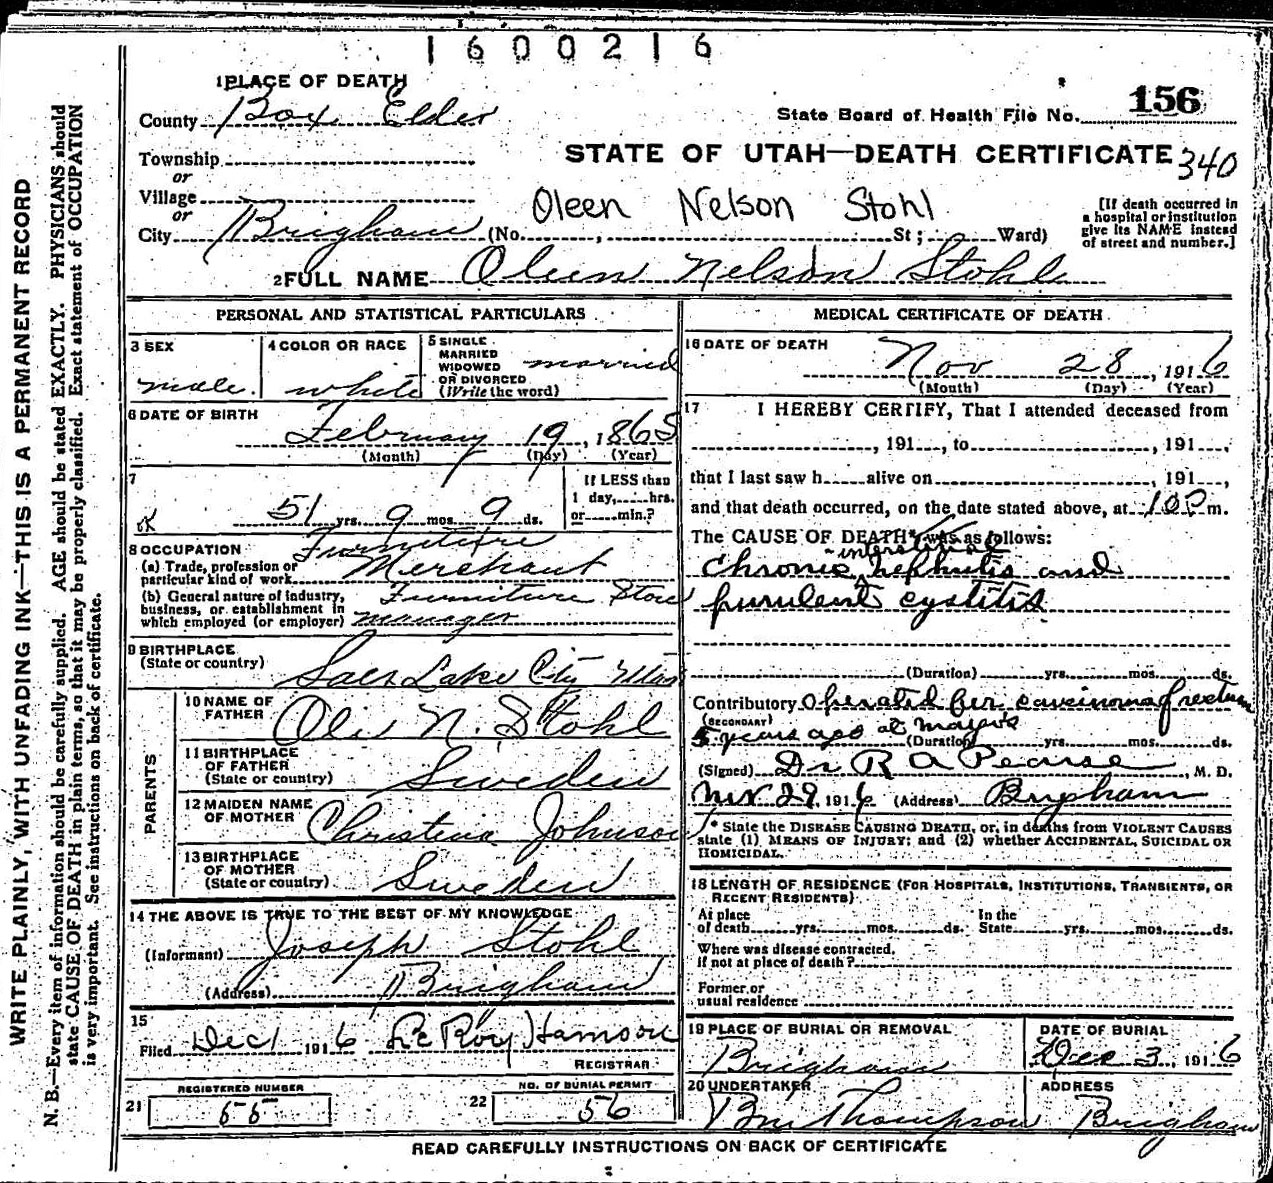 1600216
1 PLACE OF DEATH
County Box Elder
State Board of Health File No. 156
Township
or
STATE OF UTAH—DEATH CERTIFICATE 340
Village
or
Oleen Nelson Stohl
City Brigham (No. , St; Ward)
[If death occurred in
a hospital or institution
give its NAME instead
of street and number.]
2 FULL NAME Oleen Nelson Stohl
PERSONAL AND STATISTICAL PARTICULARS
3 SEX
male
4 COLOR OR RACE
white
5 SINGLE
MARRIED
WIDOWED
OR DIVORCED
(Write the word)
married
6 DATE OF BIRTH
February 19, 1865
(Month) (Day) (Year)
7
OK
51 yrs. 9 mos. 9 ds.
If LESS than
1 day, hrs.
or min.?
8 OCCUPATION
(a) Trade, profession or
particular kind of work
Furniture
Merchant
(b) General nature of industry,
business, or establishment in
which employed (or employer)
Furniture Store
manager
9 BIRTHPLACE
(State or country)
Salt Lake City Utah
PARENTS
10 NAME OF
FATHER
Ole N. Stohl
11 BIRTHPLACE
OF FATHER
(State or country)
Sweden
12 MAIDEN NAME
OF MOTHER
Christina Johnson
13 BIRTHPLACE
OF MOTHER
(State or country)
Sweden
14 THE ABOVE IS TRUE TO THE BEST OF MY KNOWLEDGE
(Informant) Joseph Stohl
(Address) Brigham
15
Filed Dec 1 1916 Le Roy
REGISTRAR
REGISTERED NUMBER
21 55
NO. OF BURIAL PERMIT
22 56
MEDICAL CERTIFICATE OF DEATH
16 DATE OF DEATH
Nov 28, 1916
(Month) (Day) (Year)
17 I HEREBY CERTIFY, That I attended deceased from
, 191 , to , 191 ,
that I last saw h alive on , 191 ,
and that death occurred, on the date stated above, at 10 P m.
The CAUSE OF DEATH* was as follows:
interstitial
Chronic nephritis and
purulent cystitis
(Duration) yrs. mos. ds.
Contributory Operated for carcinoma of rectum
(SECONDARY)
5 years ago at Mayo's
(Duration) yrs. mos. ds.
(Signed) Dr R A Pearse, M. D.
Nov 29, 1916 (Address) Brigham
* State the DISEASE CAUSING DEATH, or, in deaths from VIOLENT CAUSES
state (1) MEANS OF INJURY; and (2) whether ACCIDENTAL, SUICIDAL OR
HOMICIDAL.
18 LENGTH OF RESIDENCE (FOR HOSPITALS, INSTITUTIONS, TRANSIENTS, OR
RECENT RESIDENTS)
At place
of death yrs. mos. ds.
In the
State yrs. mos. ds.
Where was disease contracted,
if not at place of death?
Former or
usual residence
19 PLACE OF BURIAL OR REMOVAL
Brigham
DATE OF BURIAL
Dec 3, 1916
20 UNDERTAKER
Thompson
ADDRESS
Brigham
READ CAREFULLY INSTRUCTIONS ON BACK OF CERTIFICATE
WRITE PLAINLY, WITH UNFADING INK—THIS IS A PERMANENT RECORD
N. B.—Every item of information should be carefully supplied. AGE should be stated EXACTLY. PHYSICIANS should
state CAUSE OF DEATH in plain terms, so that it may be properly classified. Exact statement of OCCUPATION
is very important. See instructions on back of certificate.